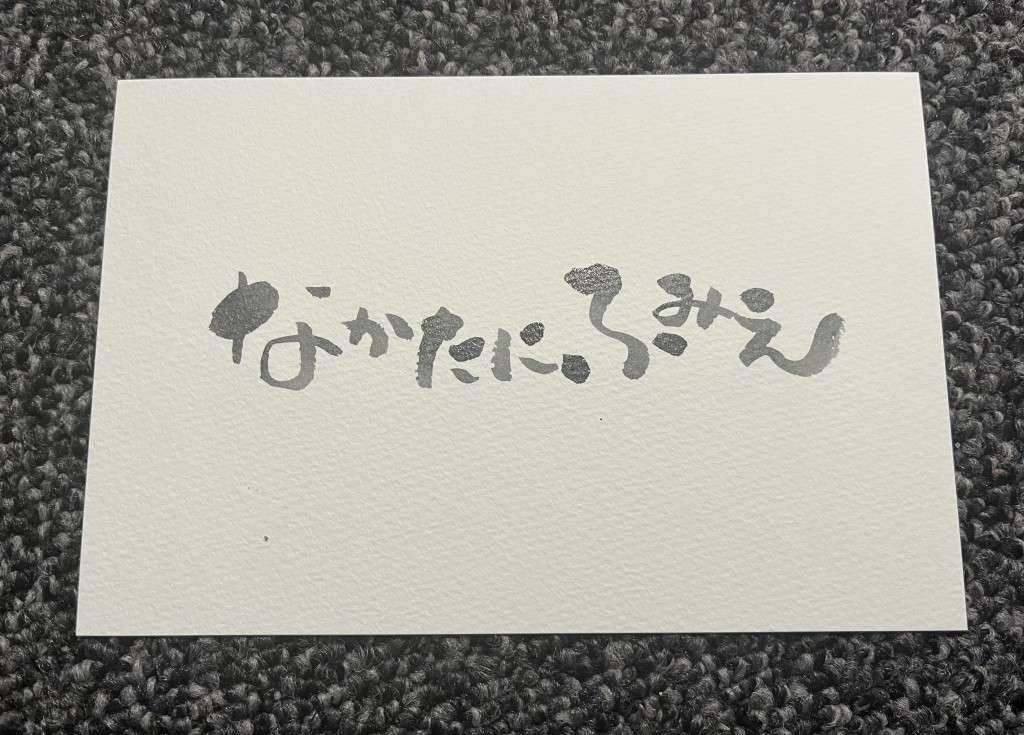 なかたにふみえ